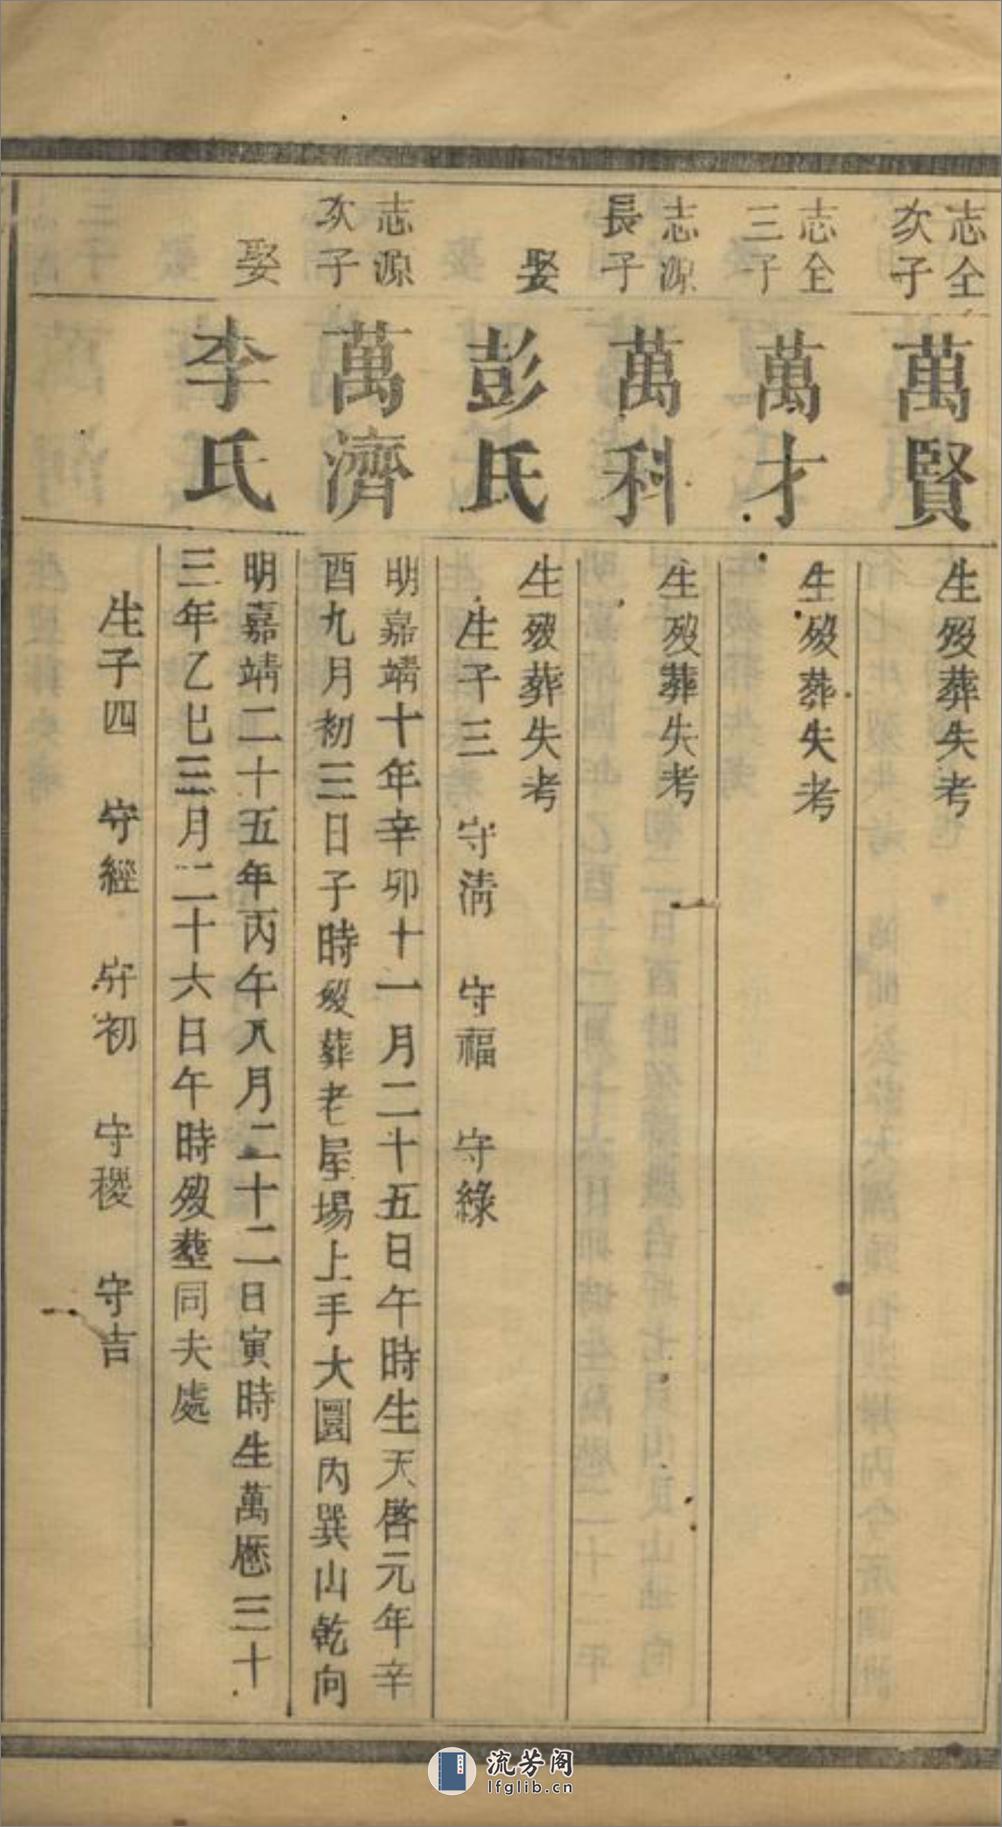 志全
次子
萬賢
生歿葬失考
志全
三子
萬才
生歿葬失考
志源
長子
萬科
生歿葬失考
娶
彭氏
生歿葬失考
生子三 守清 守福 守綠
志源
次子
萬濟
明嘉靖十年辛卯十一月二十五日午時生天啓元年辛
酉九月初三日子時歿葬老屋場上手大園內巽山乾向
娶
李氏
明嘉靖二十五年丙午八月二十二日寅時生萬懸三十
三年乙巳三月二十六日午時歿塟同夫處
生子四 守經 守初 守稷 守吉
流芳阁
lfglib.cn